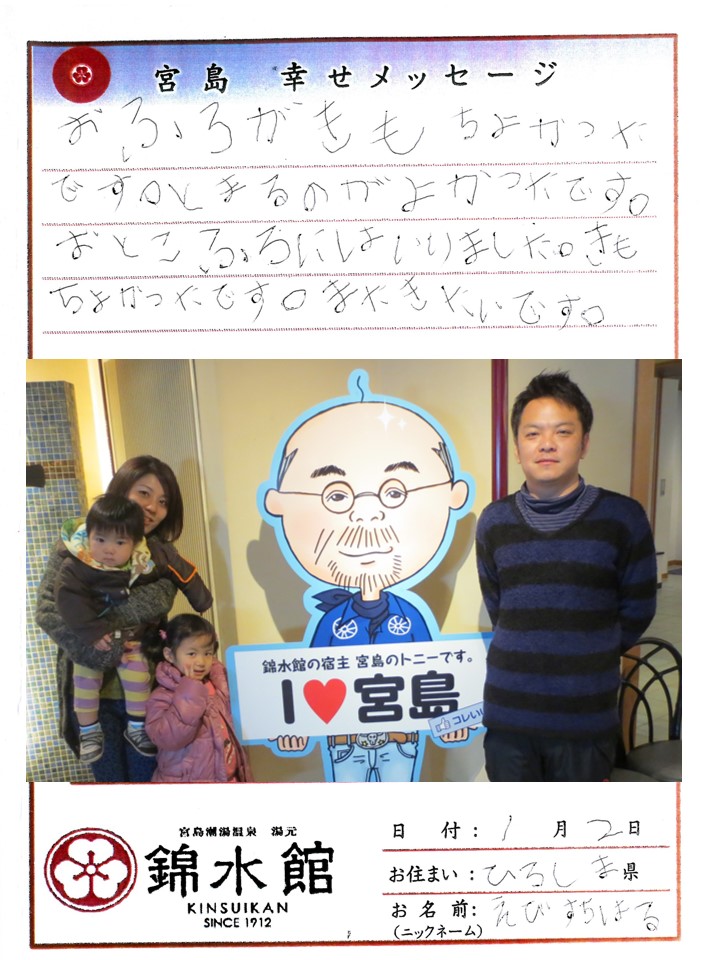 宮島 幸せメッセージ
おふろがきもちよかった
です。とまるのがよかったです。
おとこふろにはいりました。きも
ちよかったです。またきたいです。
錦水館の宿主 宮島のトニーです。
I♥宮島
コレいい
宮島潮湯温泉 湯元
錦水館
KINSUIKAN
SINCE 1912
日 付: 1月2日
お住まい:ひろしま県
お名前: えびすちはる
(ニックネーム)